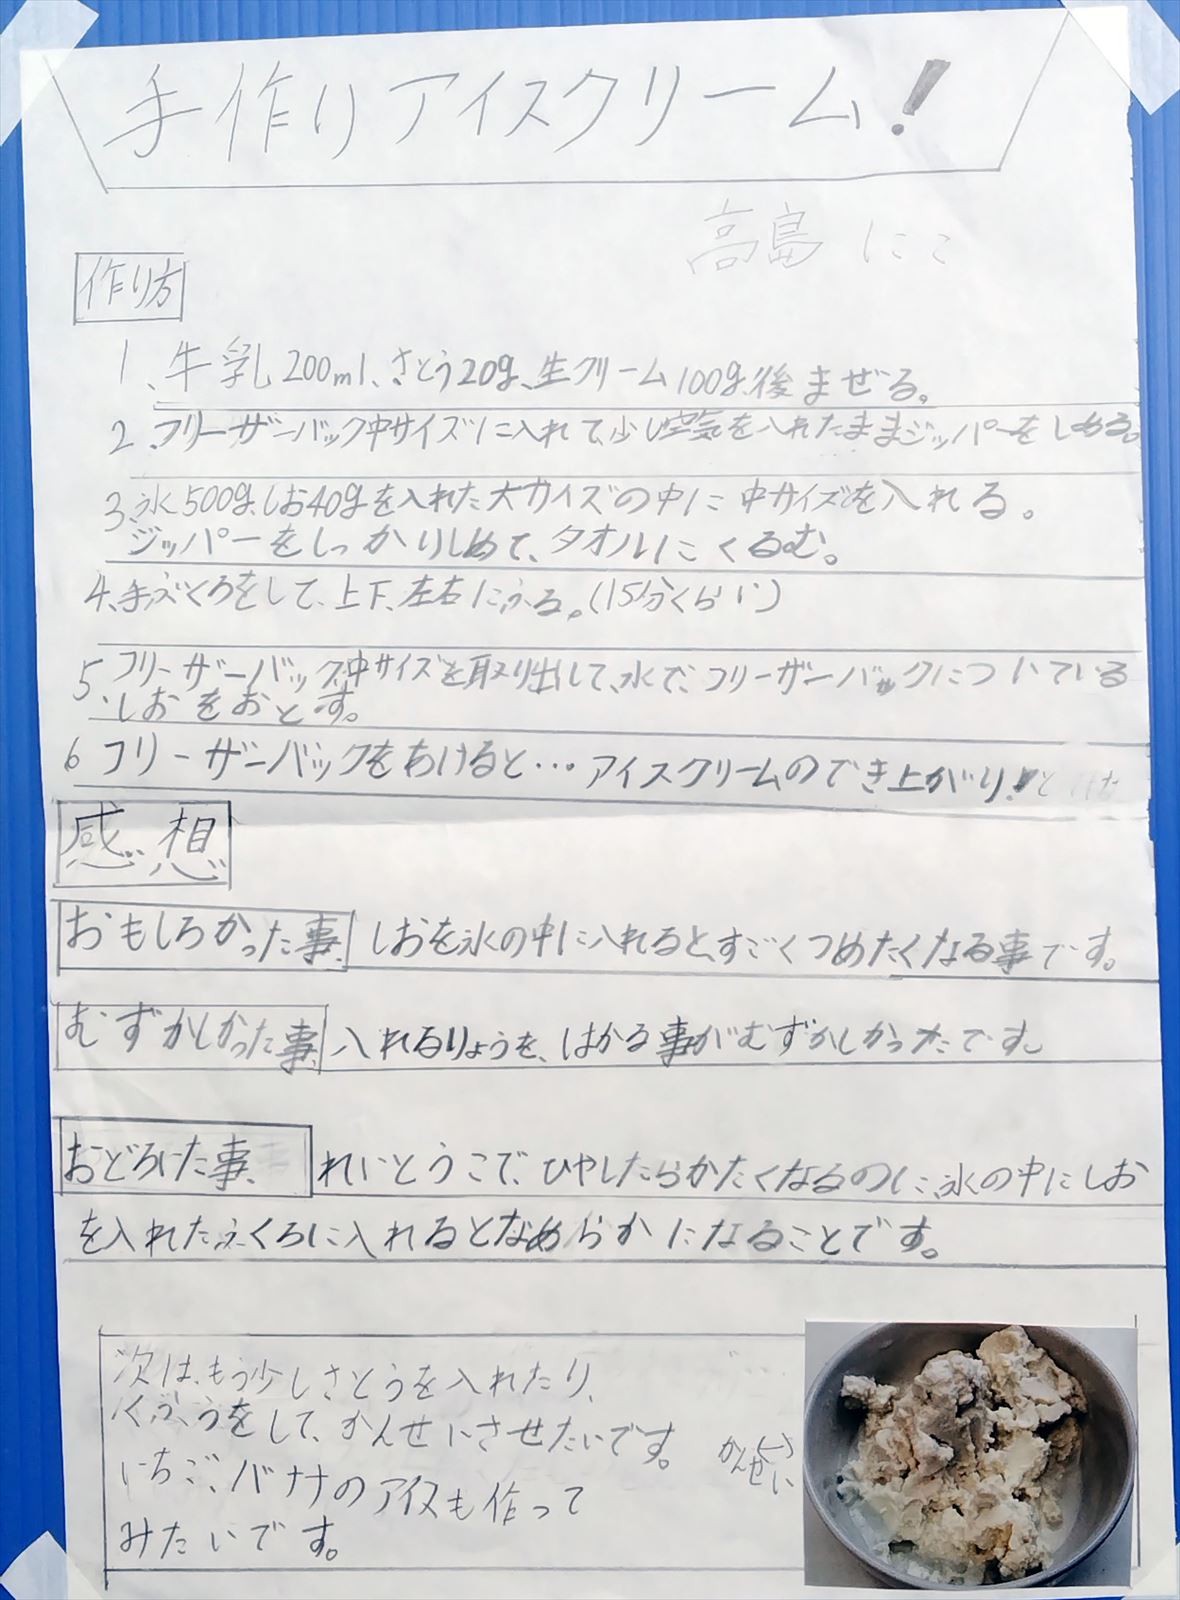 手作りアイスクリーム!
高島 にこ
作り方
1、牛乳200ml、さとう20g、生クリーム100g、後まぜる。
2、フリーザーバック中サイズに入れて、少し空気を入れたままジッパーをしめる。
3、氷500g、しお40gを入れた大サイズの中に中サイズを入れる。
ジッパーをしっかりしめて、タオルにくるむ。
4、手ぶくろをして、上下、左右にふる。(15分くらい)
5、フリーザーバック中サイズを取り出して、水で、フリーザーバックについている
しおをおとす。
6 フリーザーバックをあけると…アイスクリームのでき上がり!
感想
おもしろかった事、しおを氷の中に入れると、すごくつめたくなる事です。
むずかしかった事、入れるりょうを、はかる事がむずかしかったです。
おどろいた事、れいとうこで、ひやしたらかたくなるのに、氷の中にしお
を入れたふくろに入れるとなめらかになることです。
次は、もう少しさとうを入れたり、
くふうをして、かんせいさせたいです。
いちご、バナナのアイスも作って
みたいです。